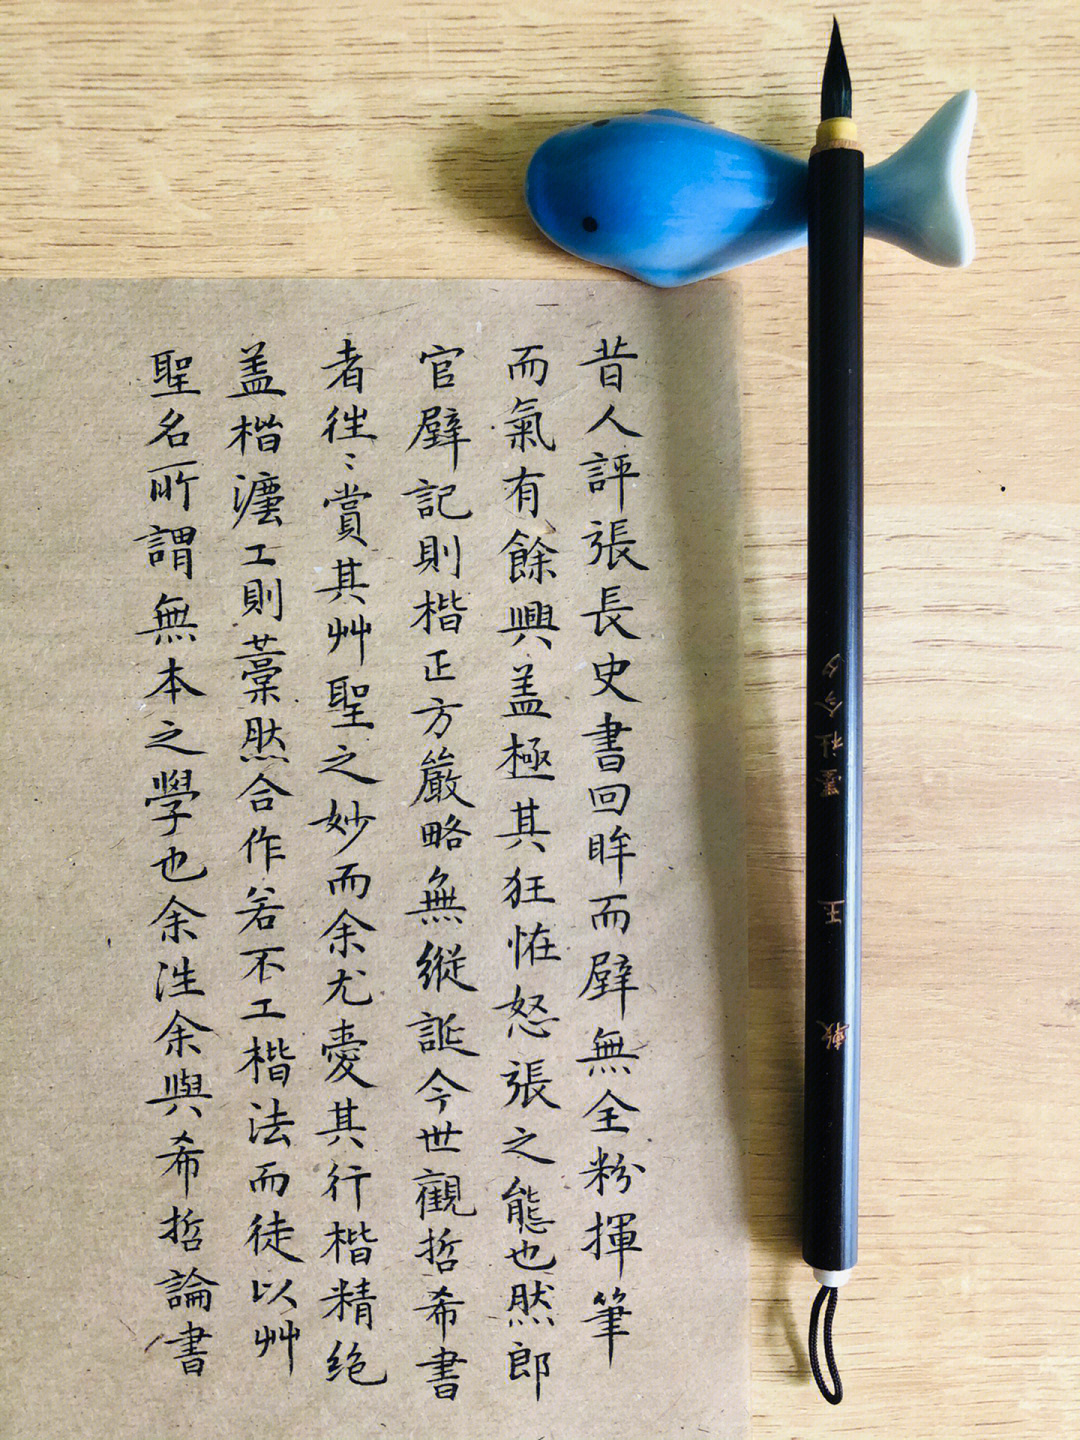 昔人評張長史書回眸而壁無全粉揮筆
而氣有餘興盖極其狂恠怒張之能也然郎
官壁記則楷正方嚴略無縱誕今世觀哲希書
者徃〻賞其艸聖之妙而余尤愛其行楷精绝
盖楷灋工則藁然合作若不工楷法而徒以艸
聖名所謂無本之學也余泩余與希哲論書
今夕
墨社
玉